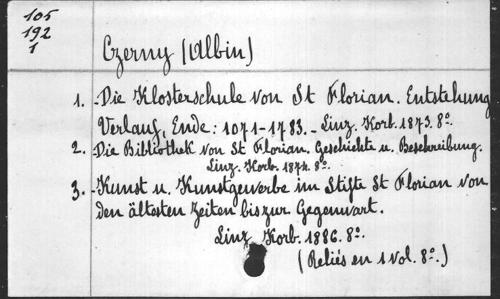 105
192
1
Czerny (Albin)
1. - Die Klosterschule von St Florian. Entstehung
Verlauf, Ende: 1071-1783. - Linz. Korb. 1873. 8º.
2. - Die Bibliothek von St Florian. Geschichte u. Beschreibung.
Linz. Korb. 1874. 8º.
3. - Kunst u. Kunstgewerbe im Stifte St Florian von
den ältesten Zeiten bis zur Gegenwart.
Linz. Korb. 1886. 8º.
(Reliés en 1 vol. 8º.)